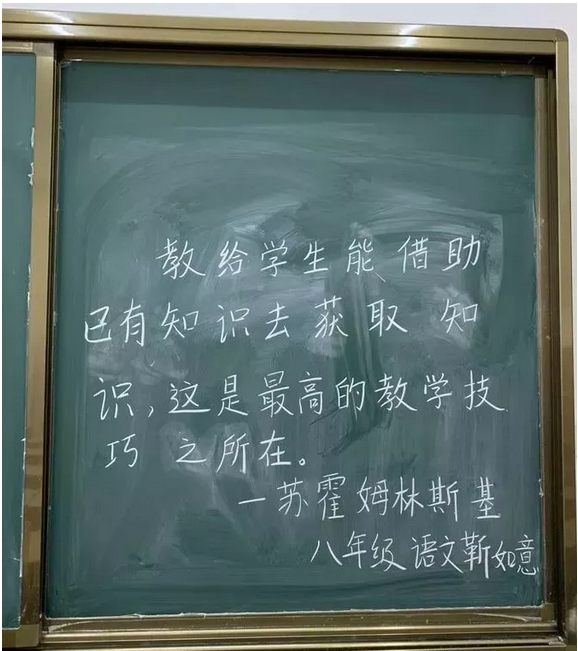 教给学生能借助
已有知识去获取知
识，这是最高的教学技
巧之所在。
—苏霍姆林斯基
八年级语文靳如意